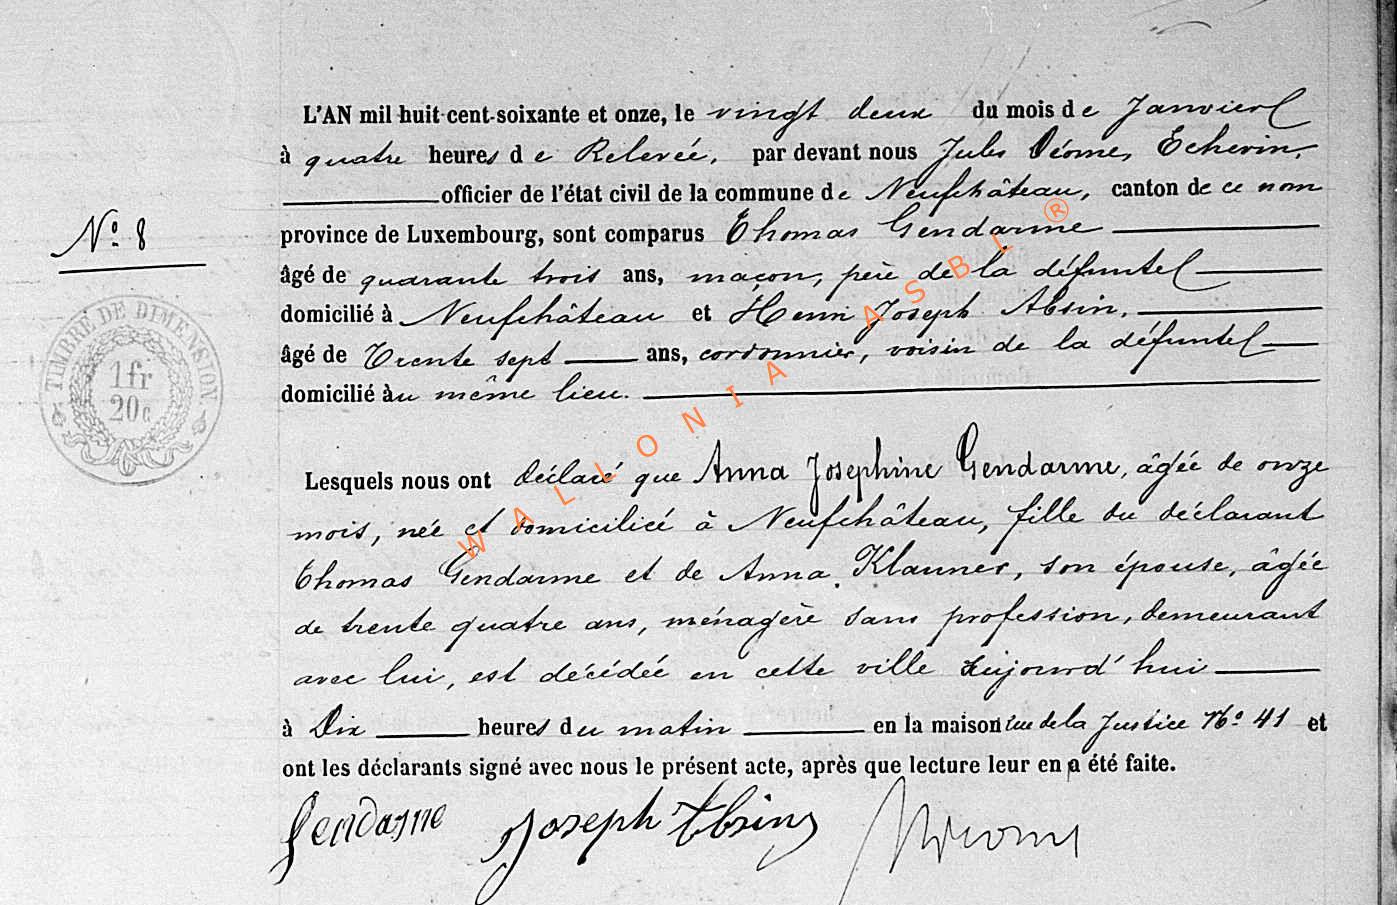 L'AN mil huit cent-soixante et onze, le vingt deux du mois de Janvier
à quatre heures de Relevée, par devant nous Jules Déome, Echevin,
officier de l'état civil de la commune de Neufchâteau, canton de ce nom
N° 8
province de Luxembourg, sont comparus Thomas Gendarme
âgé de quarante trois ans, maçon, père de la défunte
domicilié à Neufchâteau et Henri Joseph Absin,
âgé de Trente sept ans, cordonnier, voisin de la défunte
domicilié au même lieu.
TIMBRE DE DIMENSION
1fr
20c
WALLONIA ASBL ®
Lesquels nous ont déclaré que Anna Josephine Gendarme, âgée de onze
mois, née et domiciliée à Neufchâteau, fille du déclarant
Thomas Gendarme et de Anna Klauner, son épouse, âgée
de trente quatre ans, ménagère sans profession, demeurant
avec lui, est décédée en cette ville aujourd'hui
à Dix heures du matin en la maison rue de la Justice N° 41 et
ont les déclarants signé avec nous le présent acte, après que lecture leur en a été faite.
Gendarme Joseph Absin